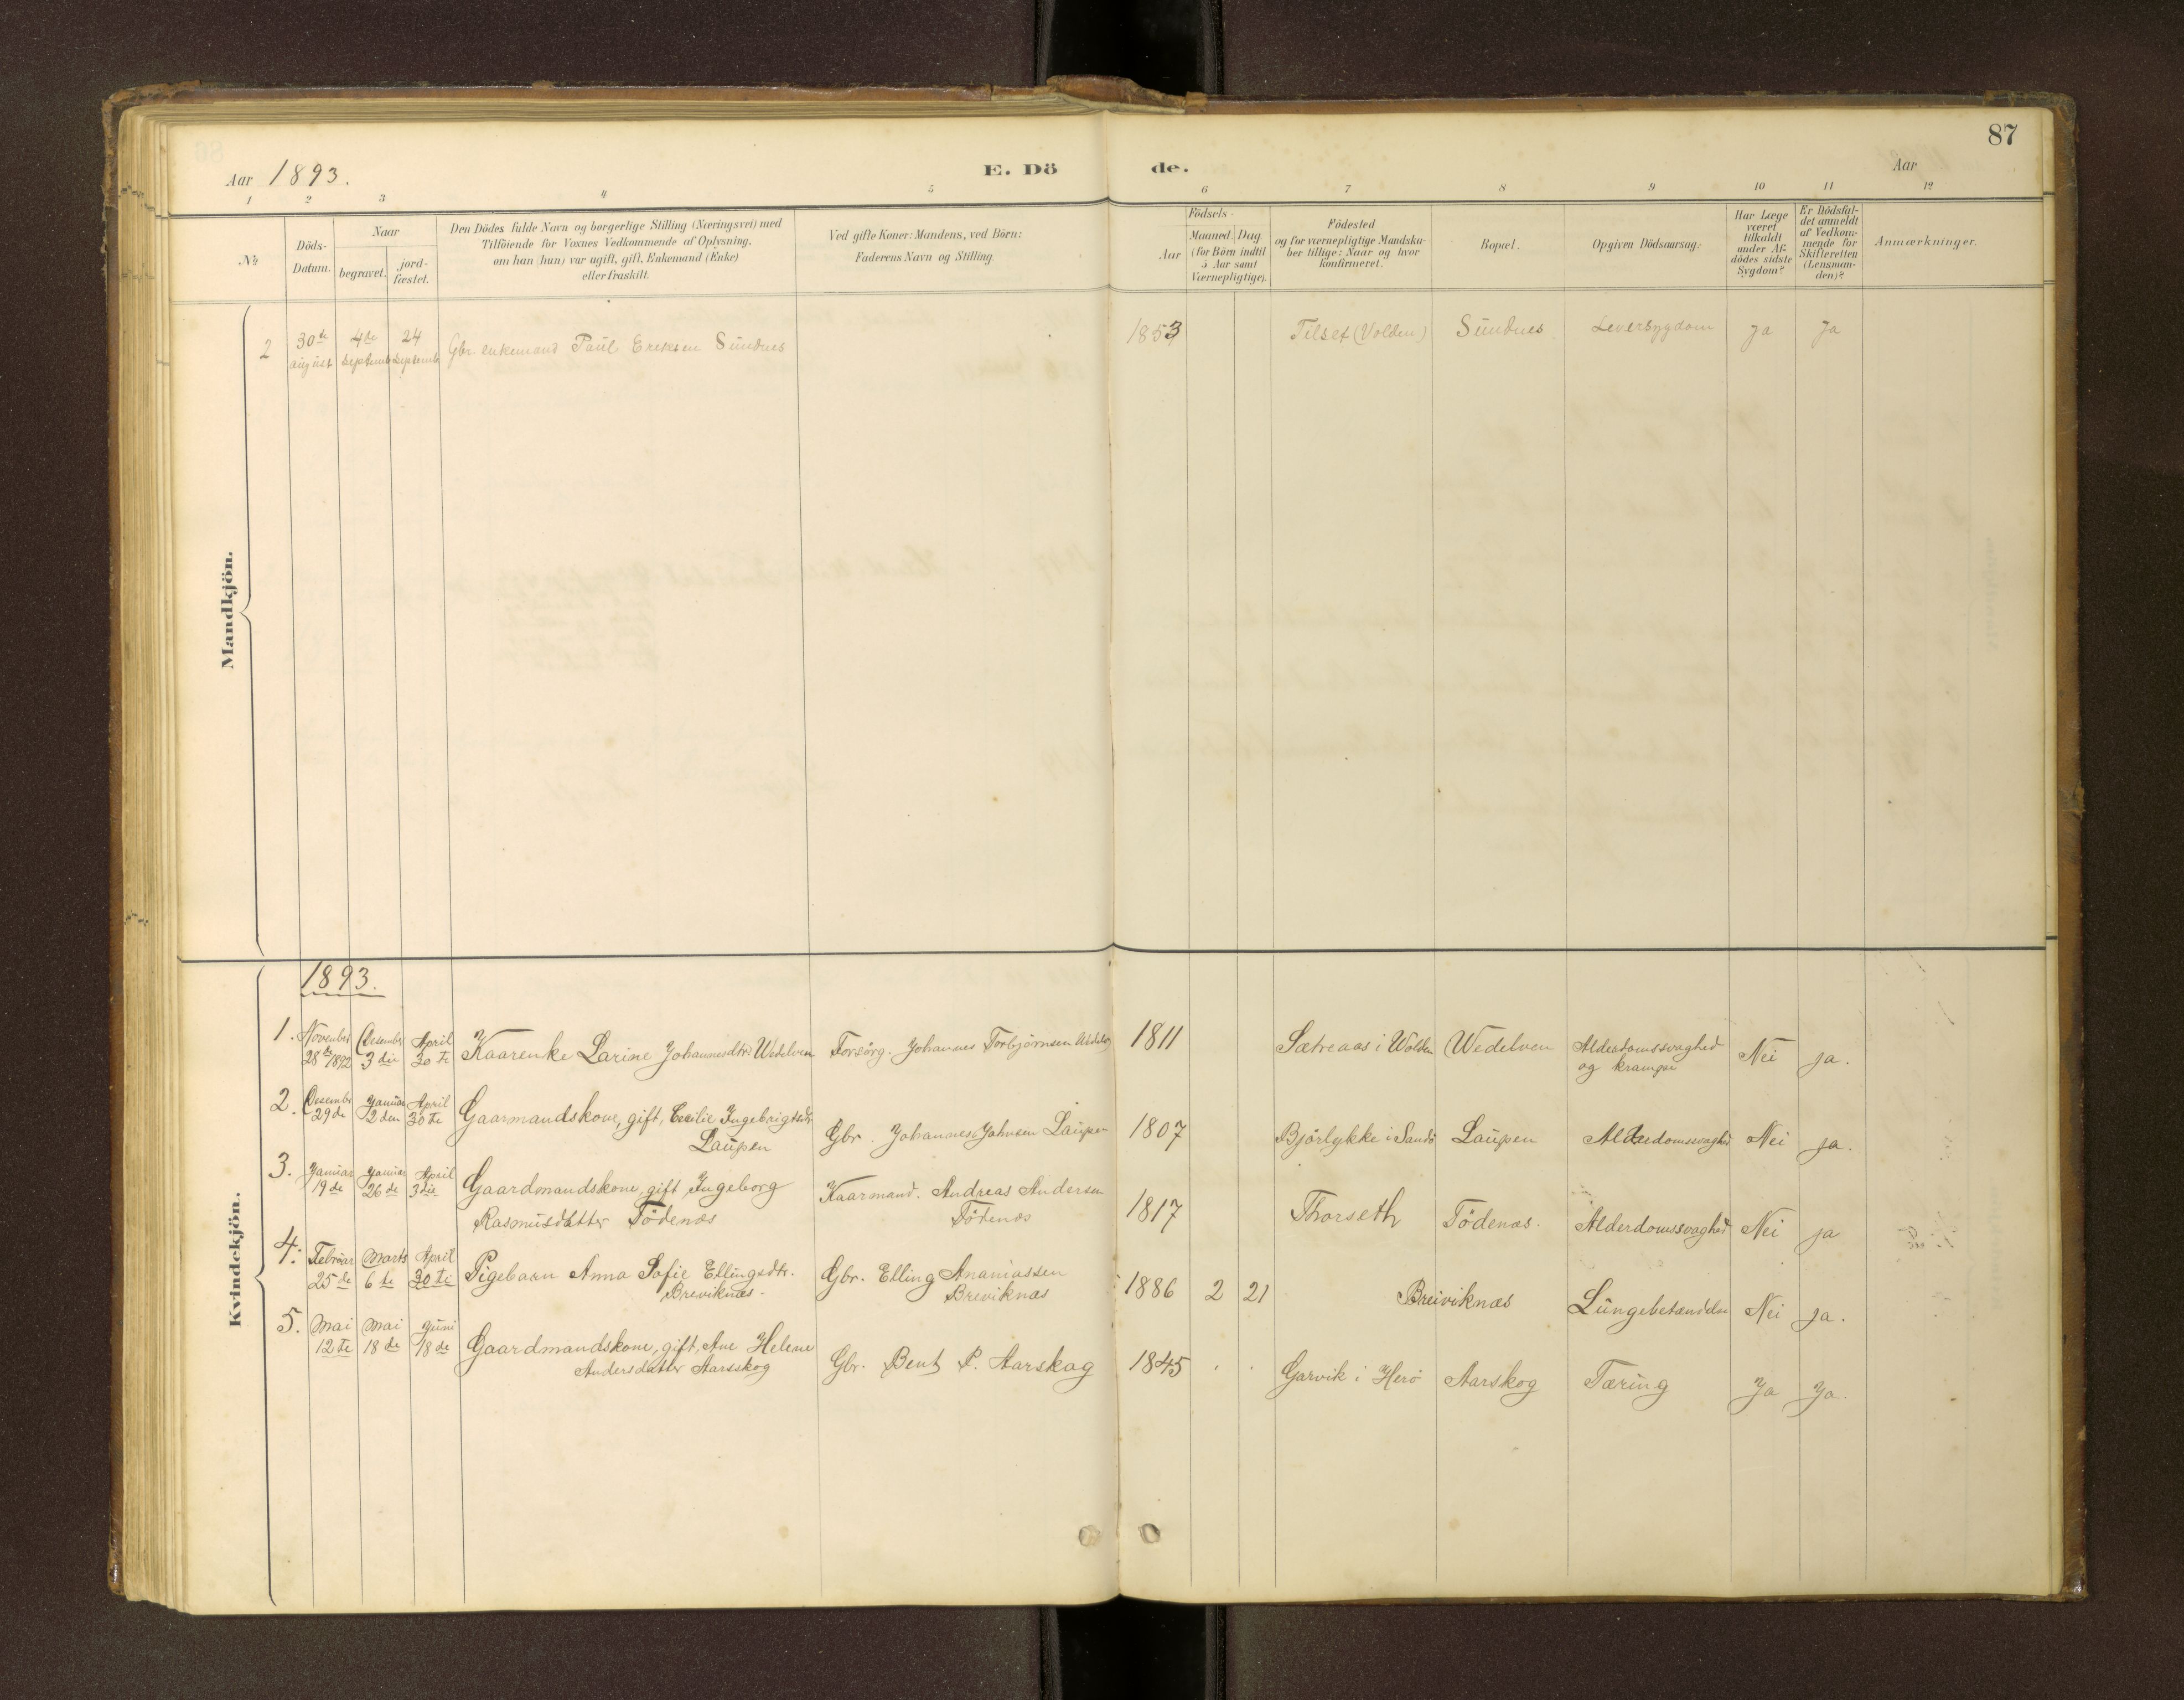 87
Aar 1893.
E. Dö
de.
Aar
1 2 3 4 5 6 7 8 9 10 11 12
№
Döds-
Datum.
Naar
begravet.
jord-
fæstet.
Den Dödes fulde Navn og borgerlige Stilling (Næringsvei) med
Tilföiende for Voxnes Vedkommende af Oplysning,
om han (hun) var ugift, gift, Enkemand (Enke)
eller fraskilt.
Ved gifte Koner: Mandens, ved Börn:
Faderens Navn og Stilling.
Födsels-
Aar
Maaned. Dag.
(for Börn indtil
5 Aar samt
Værnepligtige).
Födested
og for værnepligtige Mandska-
ber tillige: Naar og hvor
konfirmeret.
Bopæl.
Opgiven Dödsaarsag:
Har Læge
været
tilkaldt
under Af-
dödes sidste
Sygdom?
Er Dödsfal-
det anmeldt
af Vedkom-
mende for
Skifteretten
(Lensman-
den)?
Anmærkninger.
Mandkjön.
2 30te 4de 24 Gbr. enkemand Paul Eriksen Sundnes 1853 Tilset (Volden) Sundnes Leversygdom ja Ja
august Septemb Septemb
Kvindekjön.
1893.
1. November Desember April Kaarenke Larine Johannesdtr Wedelven Forsörg. Johannes Torbjörnsen Wedelv 1811 Sætreaas i Wolden Wedelven Alderdomssvaghed Nei ja.
28de 1892 3die 30te og krampe
2. Desember Januar April Gaarmandskone, gift, Cecilie Ingebrigtsdtr Gbr. Johannes Johnsen Laupen 1807 Bjørlykke i Sandö Laupen Alderdomssvaghed Nei ja.
29de 2den 30te Laupen
3. Januar Januar April Gaardmandskone, gift, Ingeborg Kaarmand. Andreas Andersen 1817 Thorseth Tödenæs. Alderdomssvaghed Nei ja
19de 26de 3die Rasmusdatter Tödenæs Tödenæs
4. Februar Marts April Pigebarn Anna Sofie Ellingsdtr. Gbr. Elling Ananiassen 1886 2 21 Breiviknæs Lungebetændelse Nei ja.
25de 6te 30te Breviknæs. Breviknæs
5. Mai Mai Juni Gaardmandskone, gift, Ane Helene Gbr. Bent P. Aarskog 1845 Garvik i Herö Aarskog Tæring Ja Ja.
12te 18de 18de Andersdatter Aarsskog